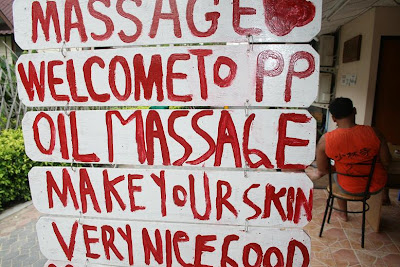 MASSAGE
WELCOME TO PP
OIL MASSAGE
MAKE YOUR SKIN
VERY NICE GOOD